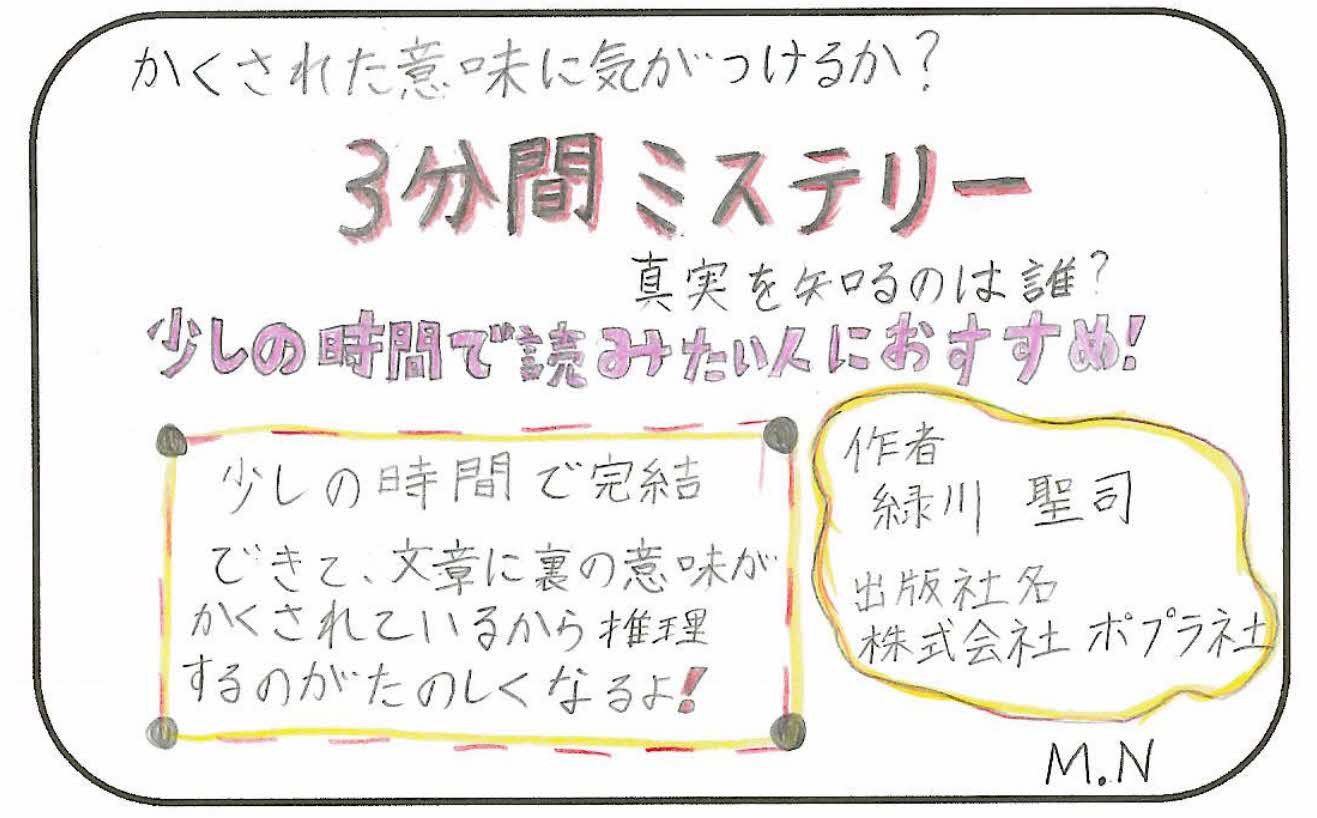 かくされた意味に気がつけるか?
3分間ミステリー
真実を知るのは誰?
少しの時間で読みたい人におすすめ!
少しの時間で完結
できて、文章に裏の意味が
かくされているから推理
するのがたのしくなるよ!
作者
緑川 聖司
出版社名
株式会社 ポプラ社
M.N